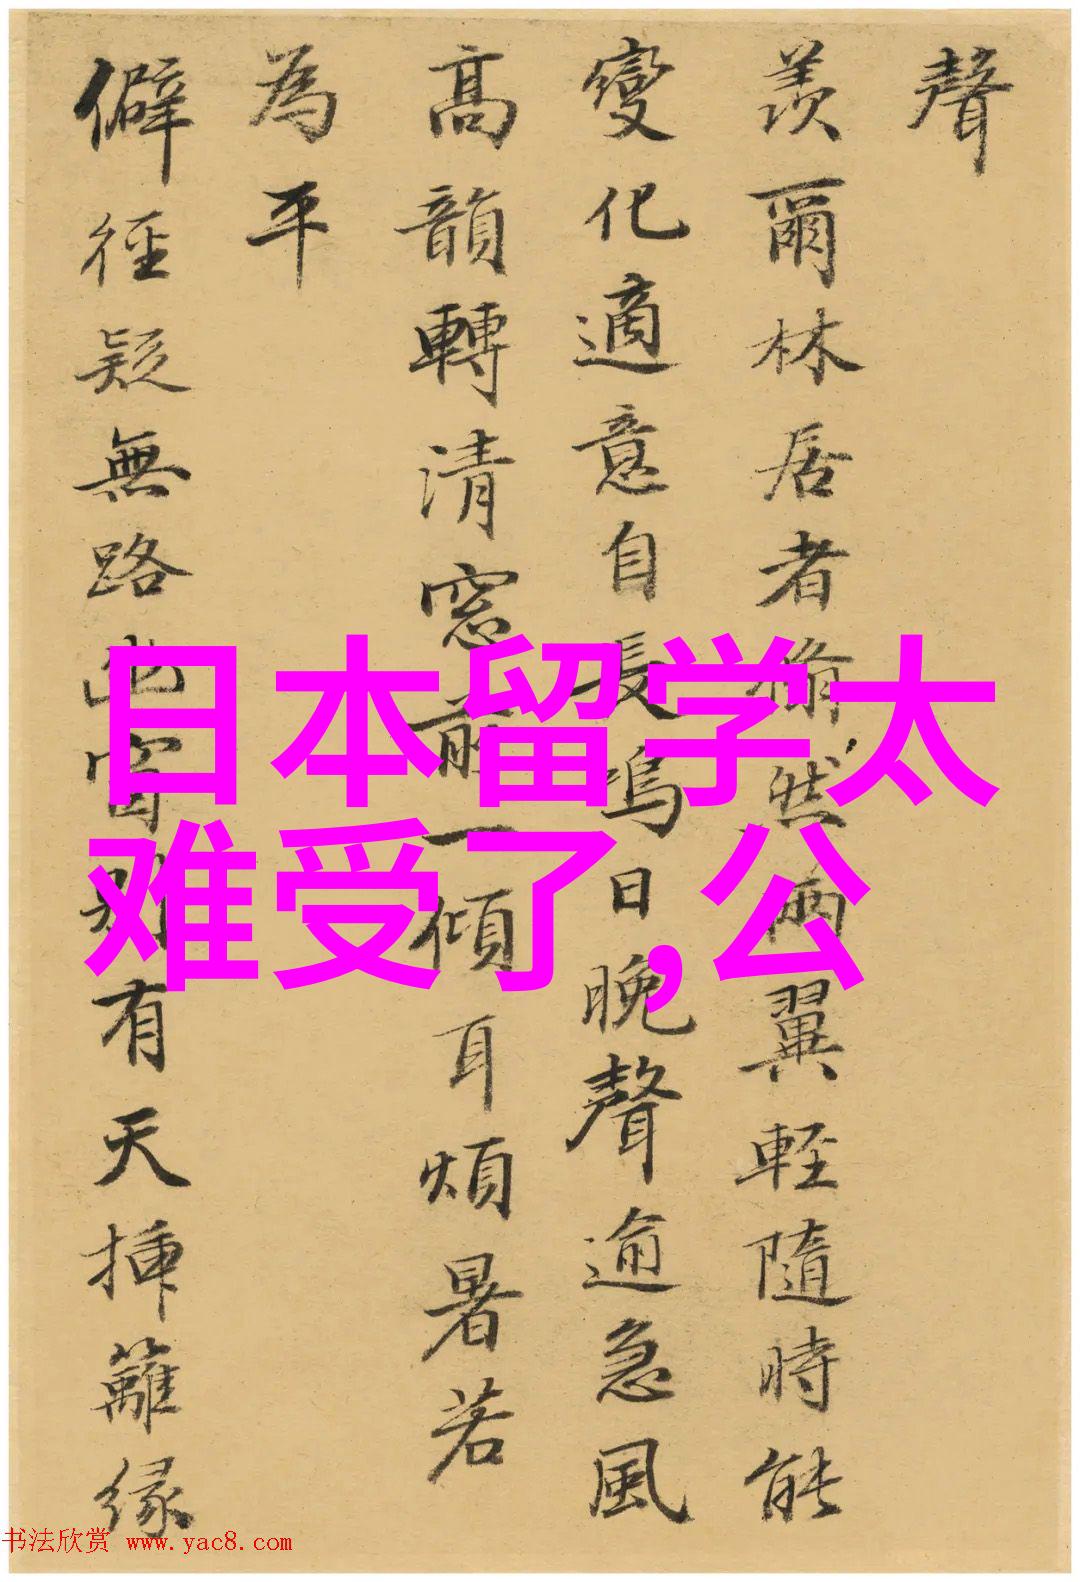 聲
羨爾林居者翛然兩翼輕隨時能
變化適意自長鳴日晚聲逾急風
高韻轉清窓前一傾耳煩暑若
為平
僻徑疑無路出窗別有天挿籬緣
日本留学太
难受了,公
书法欣赏 www.yac8.com